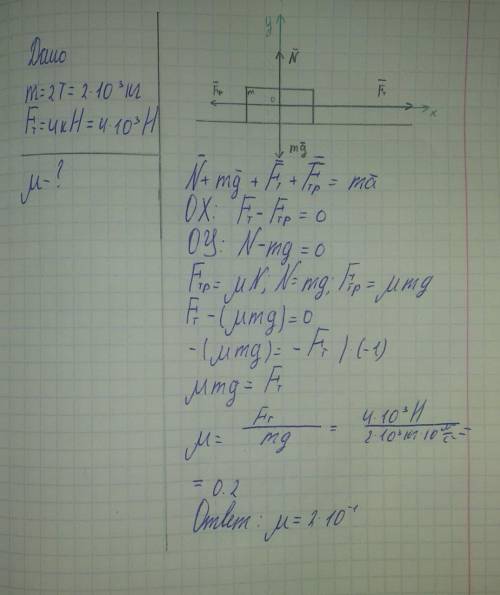 Дано
m=2т=2·10³кг
Fт=4кН=4·10³Н
μ-?
y
N̄
F̄тр
m
0
F̄т
x
mḡ
N̄+mḡ+F̄т+F̄тр=mā
OX: Fт-Fтр=0
ОУ: N-mg=0
Fтр=μN; N=mg; Fтр=μmg
Fт-(μmg)=0
-(μmg)=-Fт /·(-1)
μmg=Fт
μ= Fт/mg = 4·10³Н/2·10³кг·10 м/с² =
= 0.2
Ответ: μ=2·10⁻¹